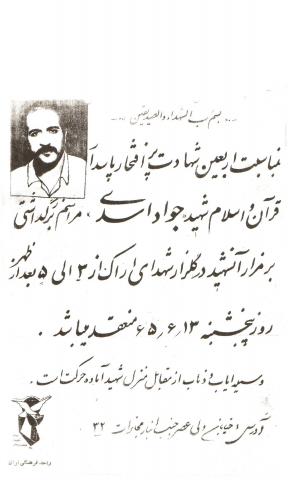 بسم رب الشهداء والصدیقین
بمناسبت اربعین شهادت پر افتخار پاسدار
قرآن و اسلام شهید جواد اسدی، مراسم بزرگداشتی
بر مزار آنشهید در گلزار شهدای اراک از ۳ الی ۵ بعد از ظهر
روز پنجشنبه ۶۵٫۶٫۱۳ منعقد میباشد.
وسیله ایاب و ذهاب از مقابل منزل شهید آماده حرکت است.
آدرس: خیابان ولی عصر جنب انبار مخابرات ۳۲
واحد فرهنگی اراک